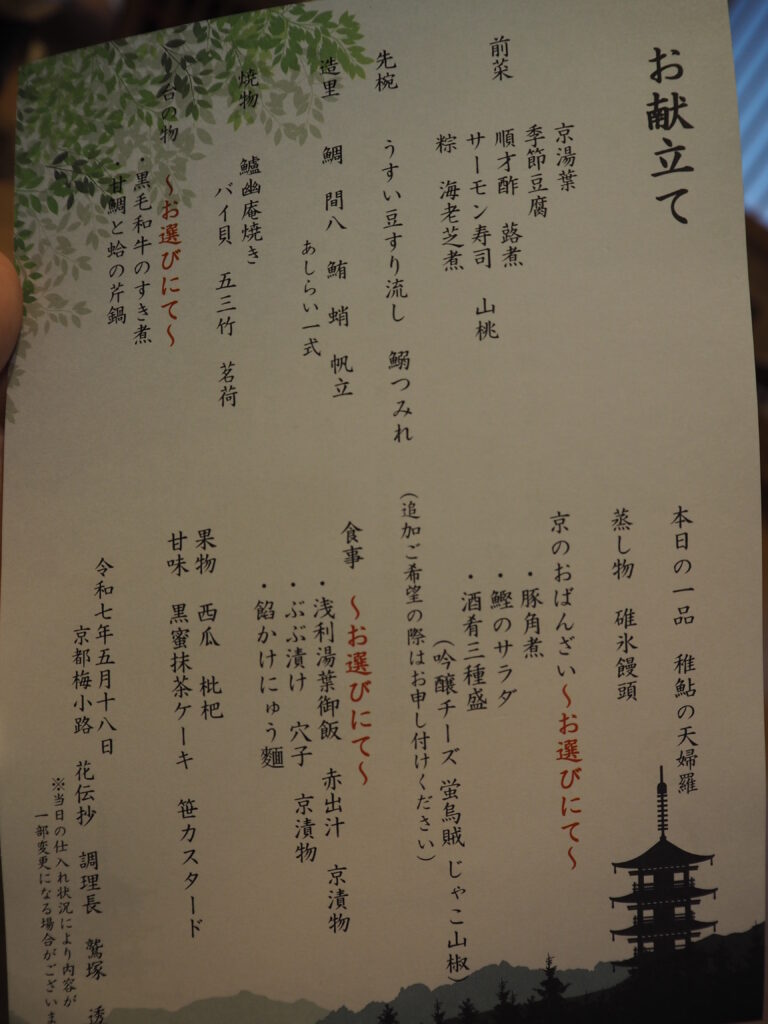 お献立て
前菜
京湯葉
季節豆腐
順才酢 蕗煮
サーモン寿司 山桃
粽 海老芝煮
先椀 うすい豆すり流し 鰯つみれ
造里 鯛 間八 鮪 蛸 帆立
あしらい一式
焼物 鱸幽庵焼き
バイ貝 五三竹 茗荷
台の物 ～お選びにて～
・黒毛和牛のすき煮
・甘鯛と蛤の芹鍋
本日の一品 稚鮎の天婦羅
蒸し物 碓氷饅頭
京のおばんざい～お選びにて～
・豚角煮
・鰹のサラダ
・酒肴三種盛
(吟醸チーズ 蛍烏賊 じゃこ山椒)
(追加ご希望の際はお申し付けください)
食事 ～お選びにて～
・浅利湯葉御飯 赤出汁 京漬物
・ぶぶ漬け 穴子 京漬物
・餡かけにゅう麵
果物 西瓜 枇杷
甘味 黒蜜抹茶ケーキ 笹カスタード
令和七年五月十八日
京都梅小路 花伝抄 調理長 鷲塚 透
※当日の仕入れ状況により内容が
一部変更になる場合がございま